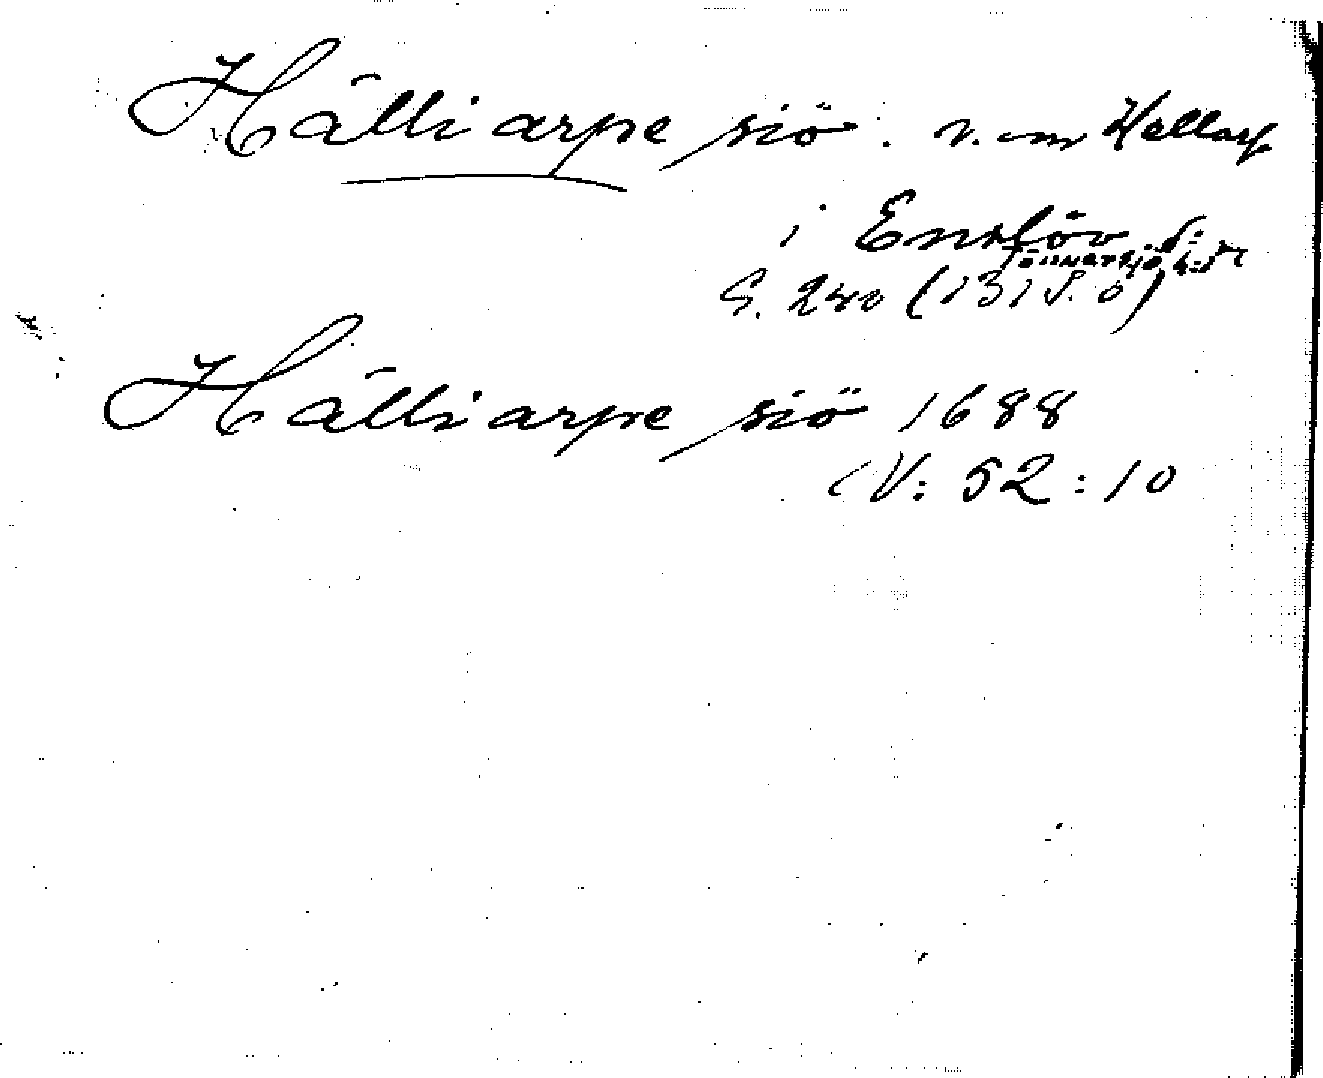 Hälliarpe siö. v. om Hällarp
i Enslöv s:
Tönnersjö h:d
G. 240 (131 S. ö)
Hälliarpe siö 1688
N: 52:10